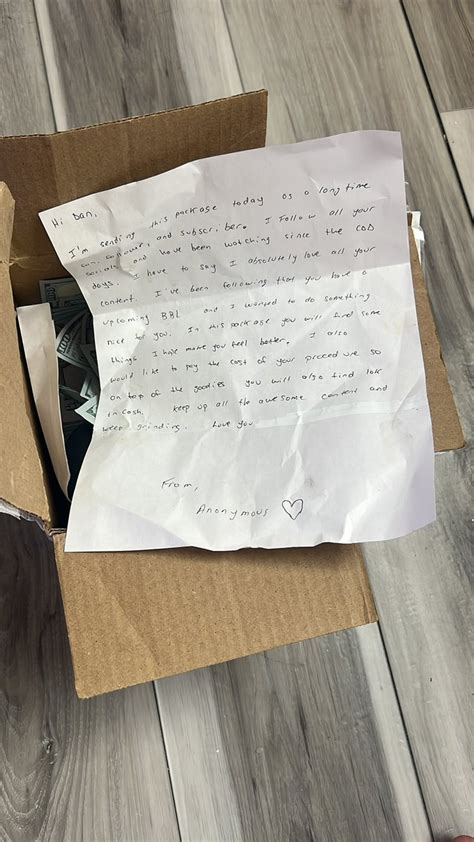 Hi Dan,
I'm sending this package today as a long time
customer, and subscriber. I follow all your
socials and have been watching since the COD
days. I have to say I absolutely love all your
content. I've been following that you have a
upcoming BBL and I wanted to do something
nice for you. In this package you will find some
things I hope make you feel better. I also
would like to pay the cost of your procedure so
on top of the goodies you will also find 10k
in cash. keep up all the awesome content and
keep grinding. Love you
From,
Anonymous